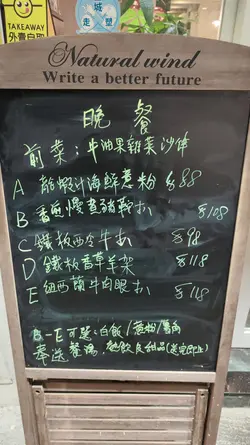 TAKEAWAY
外賣自取
Natural wind
Write a better future
晚餐
前菜:牛油果雜菜沙律
A 龍蝦汁海鮮意粉 $88
B 香煎慢煮豬鞍扒 $108
C 鐵板西冷牛扒 $98
D 鐵板香草羊架 $118
E 紐西蘭牛肉眼扒 $118
B-E可選:白飯/意粉/薯角
奉送餐湯,熱飲及甜品(送完即止)